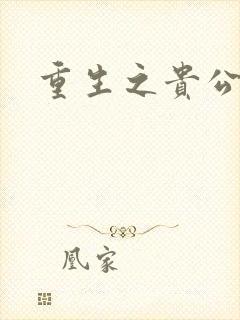 重生之貴公
凰家